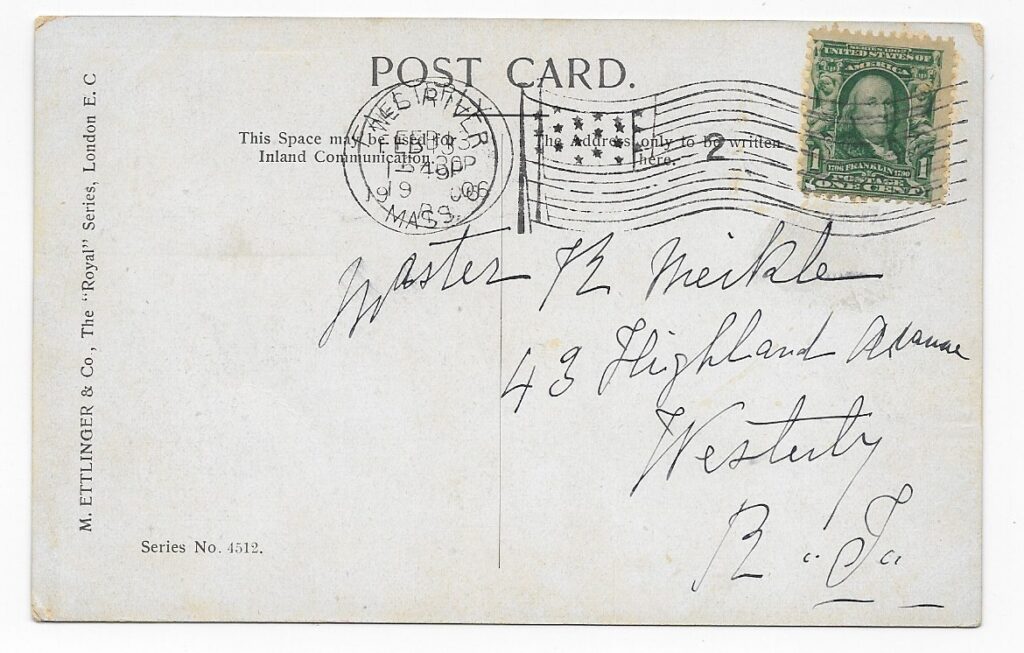 POST CARD.
This Space may be used for
Inland Communication.
The Address only to be written
here.
FALL RIVER
FEB 13
1906
MASS.
2
SERIES 1902
UNITED STATES OF
AMERICA
1 1
1706 FRANKLIN 1790
POSTAGE
ONE CENT
Master R Meikle
43 Highland Avenue
Westerly
R "I"
M. ETTLINGER & Co., The "Royal" Series, London E. C
Series No. 4512.